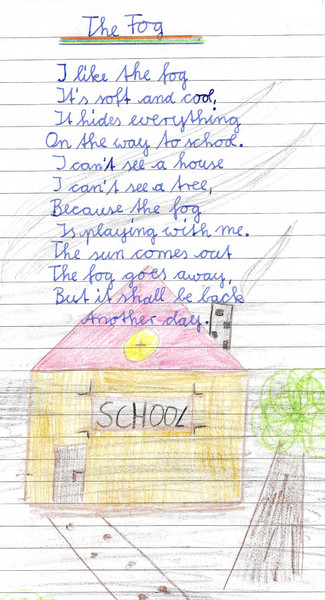 The Fog
I like the fog
It's soft and cool,
It hides everything
On the way to school.
I can't see a house
I can't see a tree,
Because the fog
Is playing with me.
The sun comes out
The fog goes away,
But it shall be back
Another day.
SCHOOL